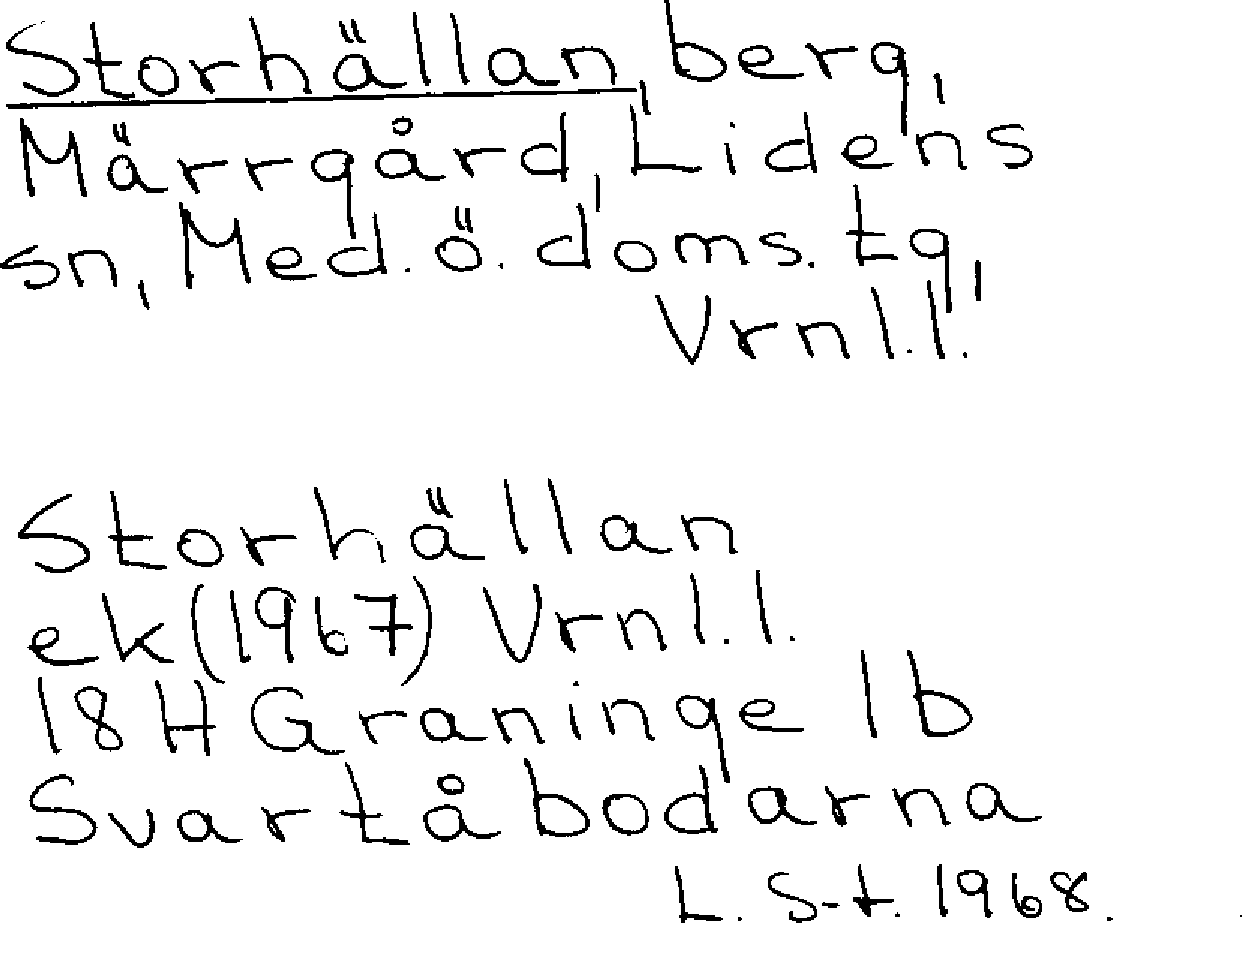 Storhällan, berg,
Märrgård, Lidens
sn, Med. ö. doms. tg,
Vrnl.l.
Storhällan
ek (1967) Vrnl.l.
18H Graninge 1b
Svartåbodarna
L. S-t. 1968.